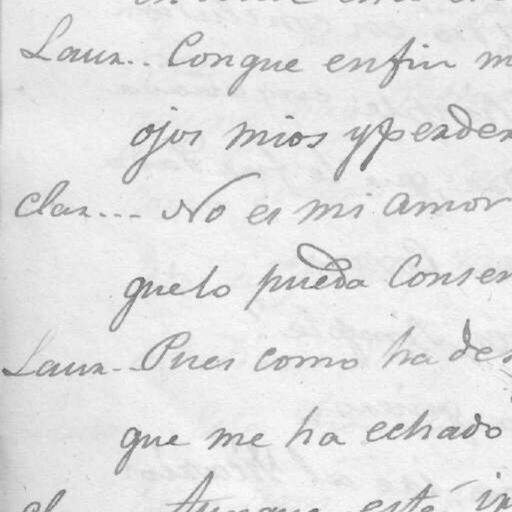 Laur.. Conque enfin m
ojos mios y perder
Clar... No es mi amor
que lo pueda Conser
Laur.. Pues como ha des
que me ha echado
Cl Aunque esté ir